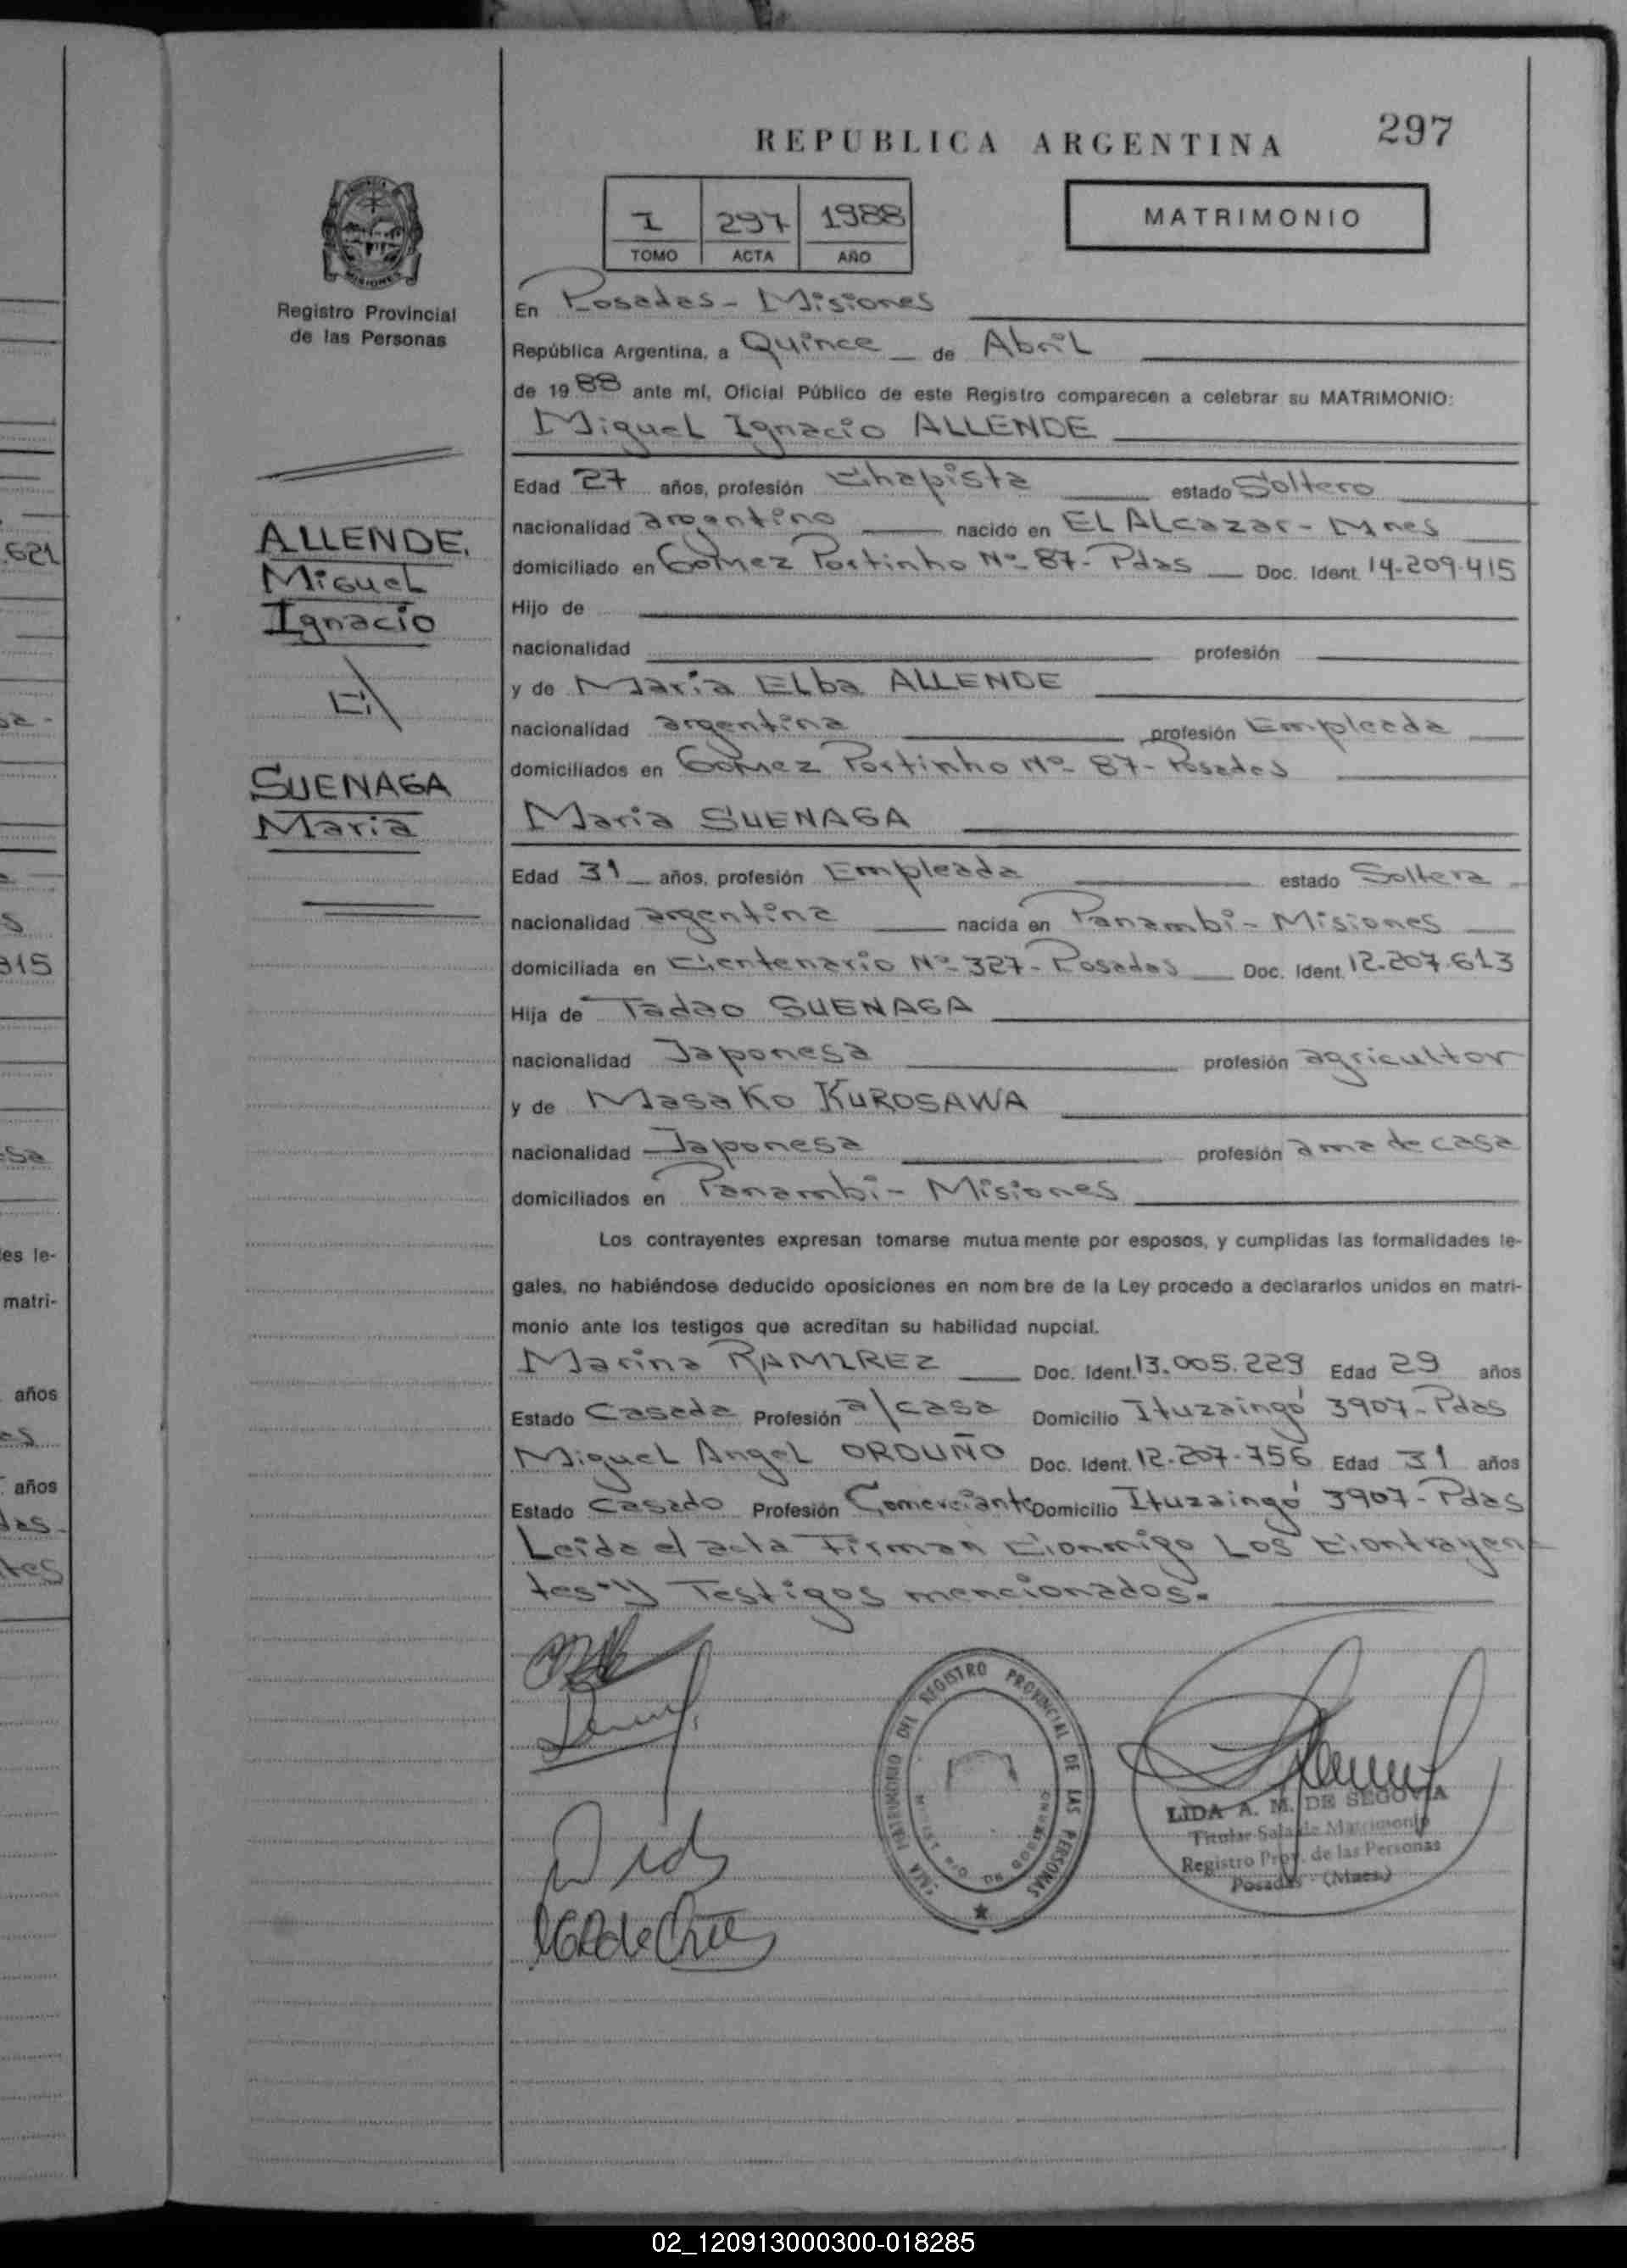 297
REPUBLICA ARGENTINA
I 297 1988
TOMO ACTA AÑO
MATRIMONIO
MISIONES
Registro Provincial
de las Personas
ALLENDE,
Miguel
Ignacio
SUENAGA
Maria
En Posadas - Misiones
República Argentina, a Quince de Abril
de 1988 ante mí, Oficial Público de este Registro comparecen a celebrar su MATRIMONIO:
Miguel Ignacio ALLENDE
Edad 27 años, profesión Chapista estado Soltero
nacionalidad argentino nacido en EL ALcazar - Mnes
domiciliado en Gomez Portinho Nº 87 - Pdas Doc. Ident. 14.209.415
Hijo de
nacionalidad profesión
y de Maria ELba ALLENDE
nacionalidad argentina profesión Empleada
domiciliados en Gomez Portinho Nº 87 - Posadas
Maria SUENAGA
Edad 31 años, profesión Empleada estado Soltera
nacionalidad argentina nacida en Panambi - Misiones
domiciliada en Centenario Nº 327 - Posadas Doc. Ident. 12.207.613
Hija de Tadao SUENAGA
nacionalidad Japonesa profesión agricultor
y de Masako KUROSAWA
nacionalidad Japonesa profesión ama de casa
domiciliados en Panambi - Misiones
Los contrayentes expresan tomarse mutuamente por esposos, y cumplidas las formalidades le-
gales, no habiéndose deducido oposiciones en nombre de la Ley procedo a declararlos unidos en matri-
monio ante los testigos que acreditan su habilidad nupcial.
Marina RAMIREZ Doc. Ident. 13.005.229 Edad 29 años
Estado Casada Profesión a/casa Domicilio Ituzaingó 3907 - Pdas
Miguel Angel ORDUÑO Doc. Ident. 12.207.756 Edad 31 años
Estado Casado Profesión Comerciante Domicilio Ituzaingó 3907 - Pdas
Leida el acta Firman Conmigo Los Contrayen
tes y Testigos mencionados.
REGISTRO PROVINCIAL DE LAS PERSONAS
LIDA A. M. DE SEGOVIA
Titular Sala de Matrimonio
Registro Prov. de las Personas
Posadas (Mnes.)
621
315
es le-
matri-
años
años
02_120913000300-018285